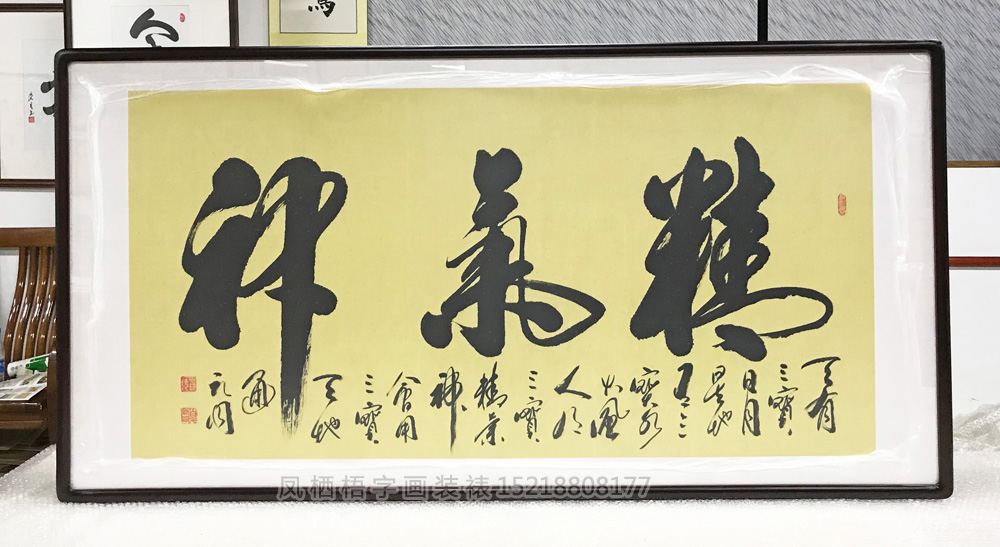 精氣神
天有
三寶
日月
星地
有三
寶水
火風
人有
三寶
精氣
神
會用
三寶
天地
通
凤栖梧字画装裱15218808177